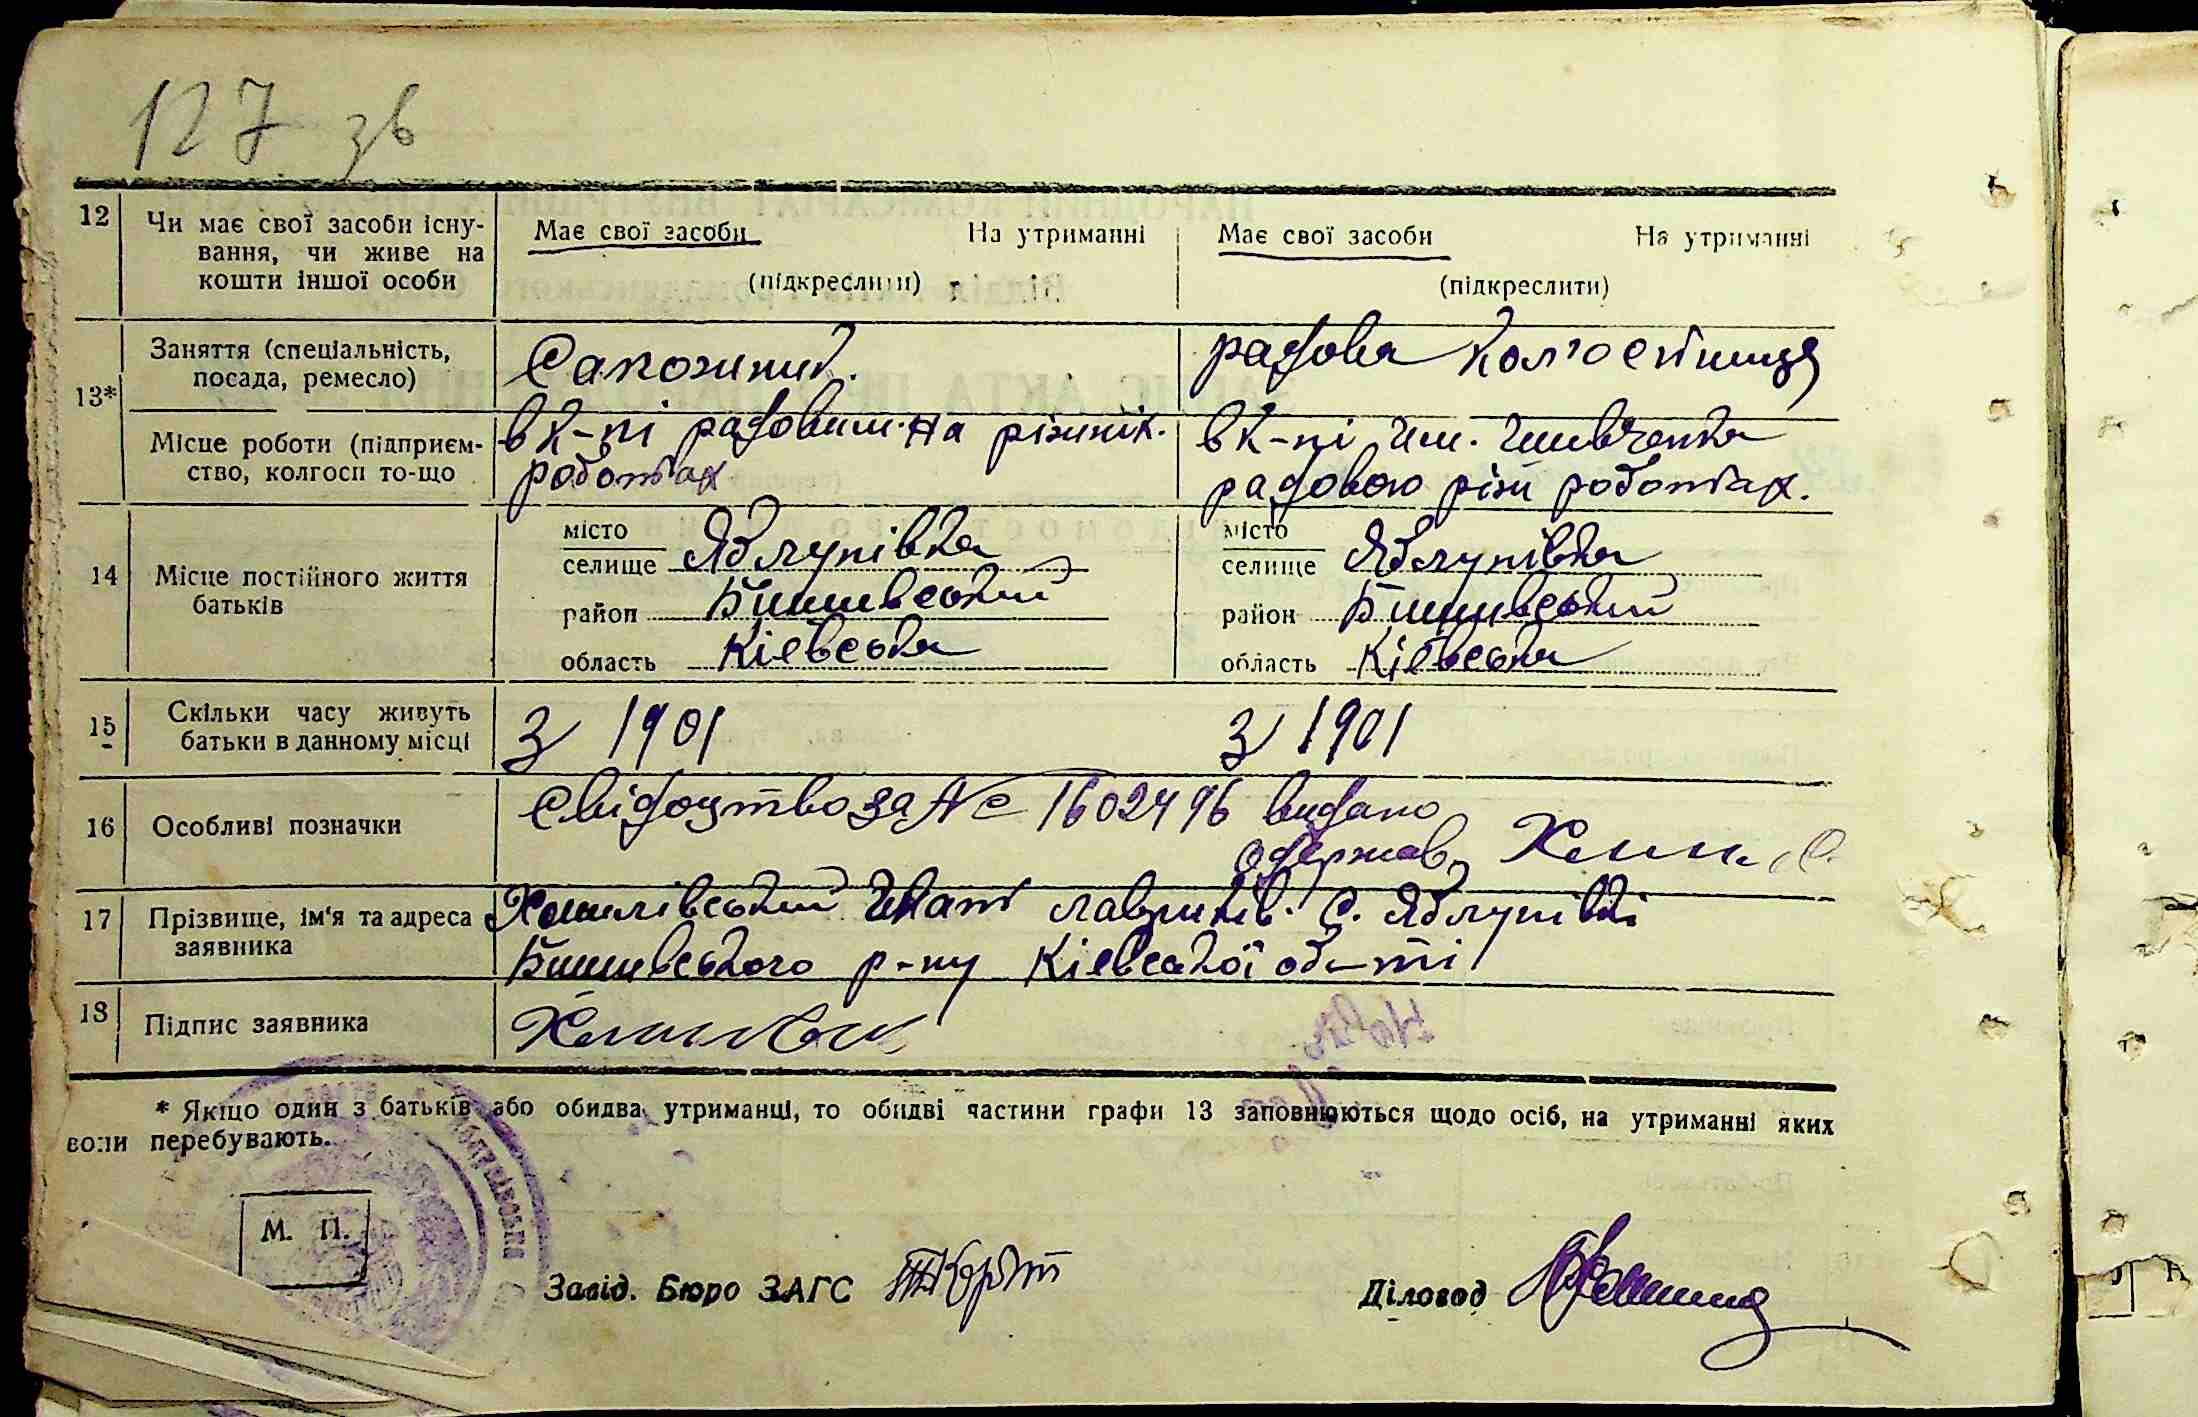 127 зв
12 Чи має свої засоби існу- Має свої засоби На утриманні Має свої засоби На утриманні
вання, чи живе на
кошти іншої особи (підкреслити) (підкреслити)
13* Заняття (спеціальність, Сапожник. радова колгоспниця
посада, ремесло)
Місце роботи (підприєм- в к-пі радовим. на різних. в к-пі им. Шевченка
ство, колгосп то-що роботах радовою різн роботах.
14 Місце постійного життя місто місто
батьків селище Яблунівка селище Яблунівка
район Бишивський район Бишивський
область Кіевська область Кіевська
15 Скільки часу живуть З 1901 З 1901
батьки в данному місці
16 Особливі позначки Свідоцтво за № 1602496 видано
одержав
17 Прізвище, ім'я та адреса Игнат с. Яблунівкі
заявника Бишивського р-ну Кіевської об-ті
18 Підпис заявника
* Якщо один з батьків або обидва утриманці, то обидві частини графи 13 заповнюються щодо осіб, на утриманні яких
воли перебувають.
М. П.
Завід. Бюро ЗАГС Діловод